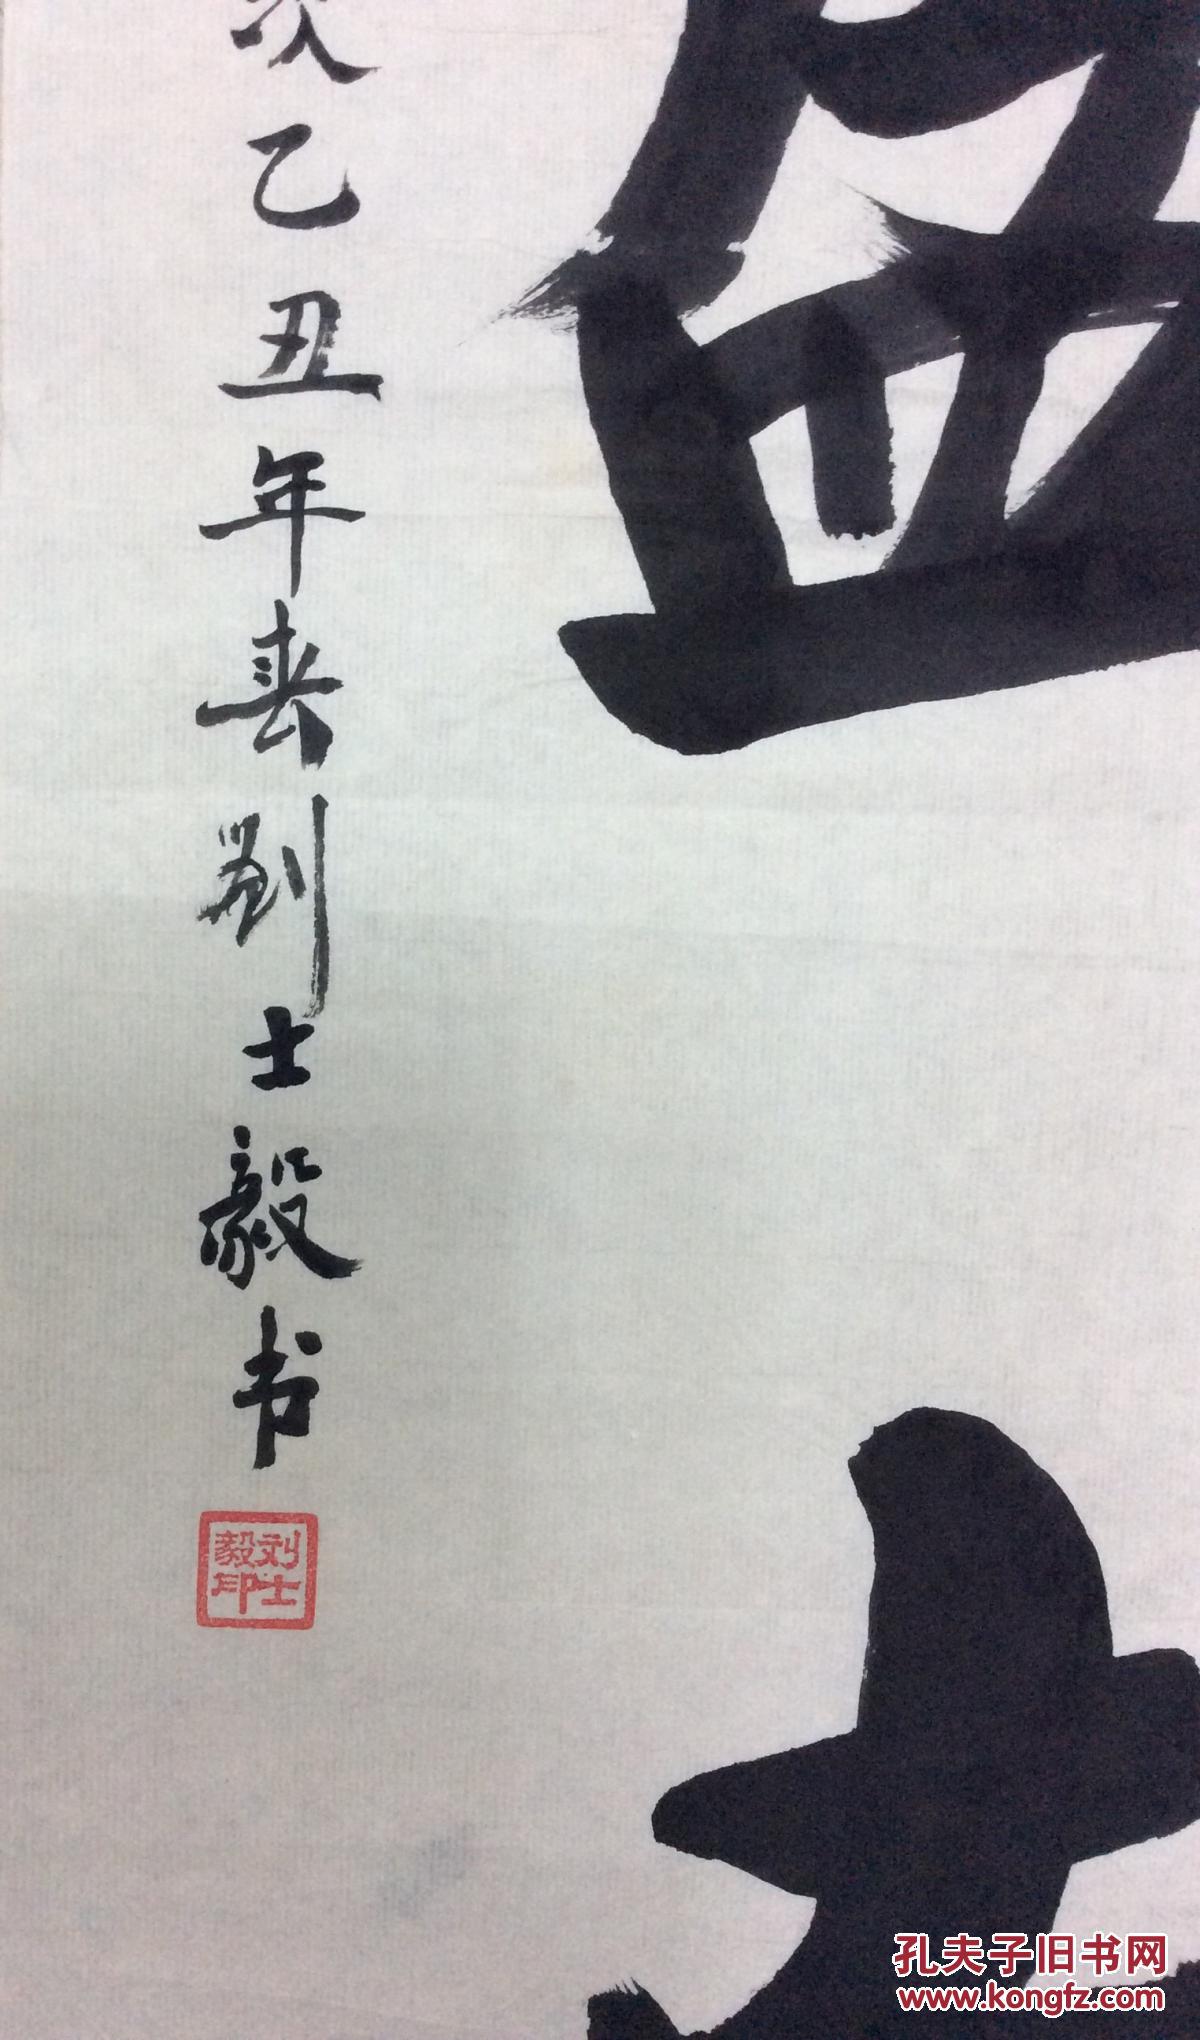 次乙丑年春刘士毅书
刘士毅印
孔夫子旧书网
www.kongfz.com